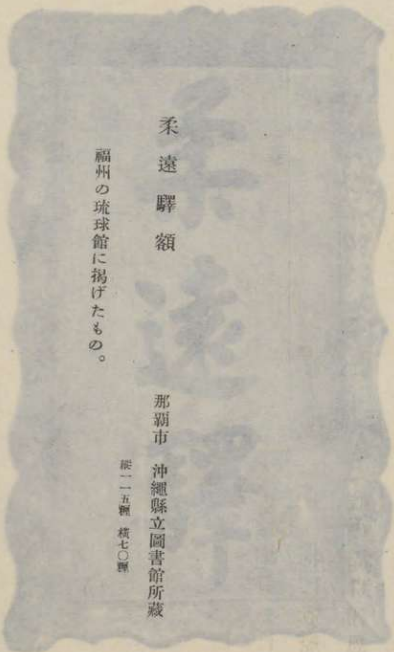 柔遠驛額
那覇市　沖繩縣立圖書館所藏
縱一一五糎　橫七〇糎
福州の琉球館に揭げたもの。